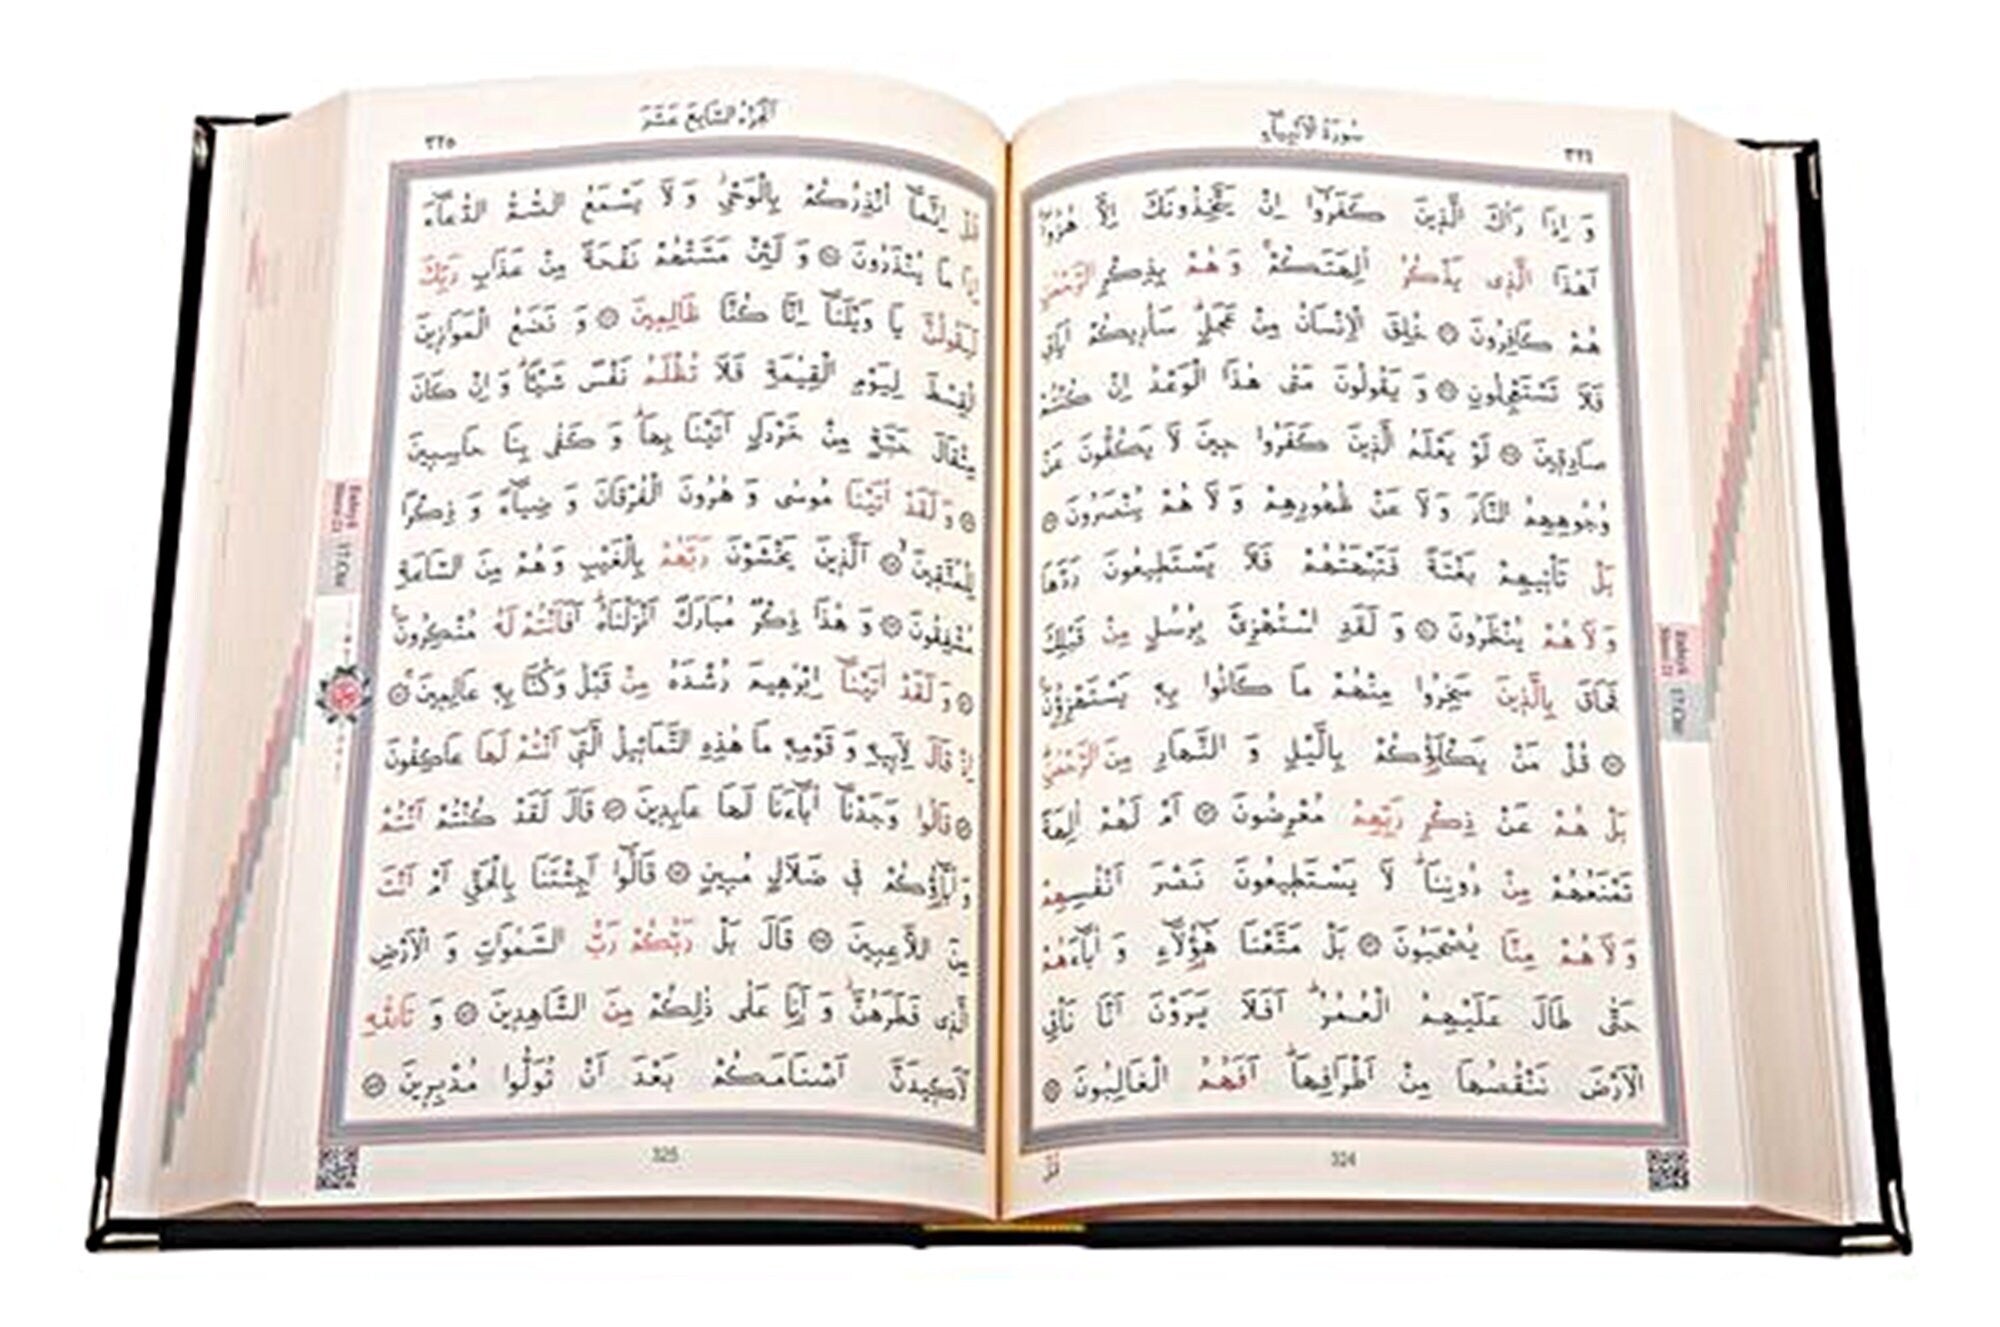 سُورَةُ الْاَنْبِيَاءِ
٣٢٤
وَ اِذَا رَاٰكَ الَّذٖينَ كَفَرُٓوا اِنْ يَتَّخِذُونَكَ اِلَّا هُزُوًاۜ
اَهٰذَا الَّذٖى يَذْكُرُ اٰلِهَتَكُمْۚ وَ هُمْ بِذِكْرِ الرَّحْمٰنِ
هُمْ كَافِرُونَ ۝ خُلِقَ الْاِنْسَانُ مِنْ عَجَلٍؕ سَاُرٖيكُمْ اٰيَاتٖى
فَلَا تَسْتَعْجِلُونِ ۝ وَ يَقُولُونَ مَتٰى هٰذَا الْوَعْدُ اِنْ كُنْتُمْ
صَادِقٖينَ ۝ لَوْ يَعْلَمُ الَّذٖينَ كَفَرُوا حٖينَ لَا يَكُفُّونَ عَنْ
وُجُوهِهِمُ النَّارَ وَ لَا عَنْ ظُهُورِهِمْ وَ لَا هُمْ يُنْصَرُونَ ۝
بَلْ تَاْتٖيهِمْ بَغْتَةً فَتَبْهَتُهُمْ فَلَا يَسْتَطٖيعُونَ رَدَّهَا
وَ لَا هُمْ يُنْظَرُونَ ۝ وَ لَقَدِ اسْتُهْزِئَ بِرُسُلٍ مِنْ قَبْلِكَ
فَحَاقَ بِالَّذٖينَ سَخِرُوا مِنْهُمْ مَا كَانُوا بِهٖ يَسْتَهْزِؤُنَ
۝ قُلْ مَنْ يَكْلَؤُكُمْ بِالَّيْلِ وَ النَّهَارِ مِنَ الرَّحْمٰنِؕ
بَلْ هُمْ عَنْ ذِكْرِ رَبِّهِمْ مُعْرِضُونَ ۝ اَمْ لَهُمْ اٰلِهَةٌ
تَمْنَعُهُمْ مِنْ دُونِنَاؕ لَا يَسْتَطٖيعُونَ نَصْرَ اَنْفُسِهِمْ
وَ لَا هُمْ مِنَّا يُصْحَبُونَ ۝ بَلْ مَتَّعْنَا هٰٓؤُلَٓاءِ وَ اٰبَٓاءَهُمْ
حَتّٰى طَالَ عَلَيْهِمُ الْعُمُرُؕ اَفَلَا يَرَوْنَ اَنَّا نَاْتِى
الْاَرْضَ نَنْقُصُهَا مِنْ اَطْرَافِهَاؕ اَفَهُمُ الْغَالِبُونَ ۝
324
قُلْ
اَلْجُزْءُ السَّابِعَ عَشَرَ
٣٢٥
قُلْ اِنَّمَٓا اُنْذِرُكُمْ بِالْوَحْىِؗ وَ لَا يَسْمَعُ الصُّمُّ الدُّعَٓاءَ
اِذَا مَا يُنْذَرُونَ ۝ وَ لَئِنْ مَسَّتْهُمْ نَفْحَةٌ مِنْ عَذَابِ رَبِّكَ
لَيَقُولُنَّ يَا وَيْلَنَٓا اِنَّا كُنَّا ظَالِمٖينَ ۝ وَ نَضَعُ الْمَوَازٖينَ
الْقِسْطَ لِيَوْمِ الْقِيٰمَةِ فَلَا تُظْلَمُ نَفْسٌ شَيْـًٔاؕ وَ اِنْ كَانَ
مِثْقَالَ حَبَّةٍ مِنْ خَرْدَلٍ اَتَيْنَا بِهَاؕ وَ كَفٰى بِنَا حَاسِبٖينَ
۝ وَ لَقَدْ اٰتَيْنَا مُوسٰى وَ هٰرُونَ الْفُرْقَانَ وَ ضِيَٓاءً وَ ذِكْرًا
لِلْمُتَّقٖينَۙ ۝ اَلَّذٖينَ يَخْشَوْنَ رَبَّهُمْ بِالْغَيْبِ وَ هُمْ مِنَ السَّاعَةِ
مُشْفِقُونَ ۝ وَ هٰذَا ذِكْرٌ مُبَارَكٌ اَنْزَلْنَاهُؕ اَفَاَنْتُمْ لَهُ مُنْكِرُونَ
۝ وَ لَقَدْ اٰتَيْنَٓا اِبْرٰهٖيمَ رُشْدَهُ مِنْ قَبْلُ وَ كُنَّا بِهٖ عَالِمٖينَۚ ۝
اِذْ قَالَ لِاَبٖيهِ وَ قَوْمِهٖ مَا هٰذِهِ التَّمَاثٖيلُ الَّتٖٓى اَنْتُمْ لَهَا عَاكِفُونَ
۝ قَالُوا وَجَدْنَٓا اٰبَٓاءَنَا لَهَا عَابِدٖينَ ۝ قَالَ لَقَدْ كُنْتُمْ اَنْتُمْ
وَ اٰبَٓاؤُكُمْ فٖى ضَلَالٍ مُبٖينٍ ۝ قَالُٓوا اَجِئْتَنَا بِالْحَقِّ اَمْ اَنْتَ
مِنَ اللَّاعِبٖينَ ۝ قَالَ بَلْ رَبُّكُمْ رَبُّ السَّمٰوَاتِ وَ الْاَرْضِ
الَّذٖى فَطَرَهُنَّؗ وَ اَنَا عَلٰى ذٰلِكُمْ مِنَ الشَّاهِدٖينَ ۝ وَ تَاللّٰهِ
لَاَكٖيدَنَّ اَصْنَامَكُمْ بَعْدَ اَنْ تُوَلُّوا مُدْبِرٖينَ ۝
325